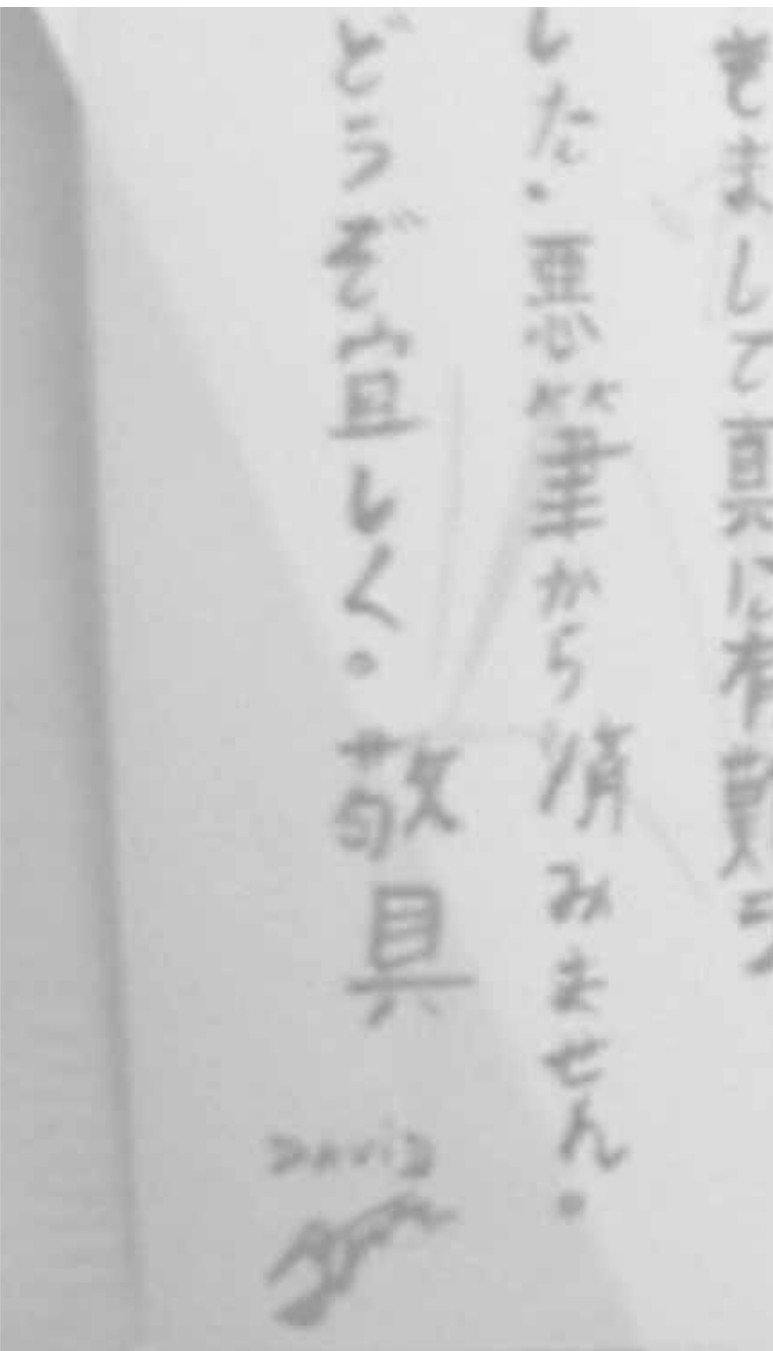 きまして真に有難う
した。悪筆から済みません。
どうぞ宜しく。敬具
DAViD